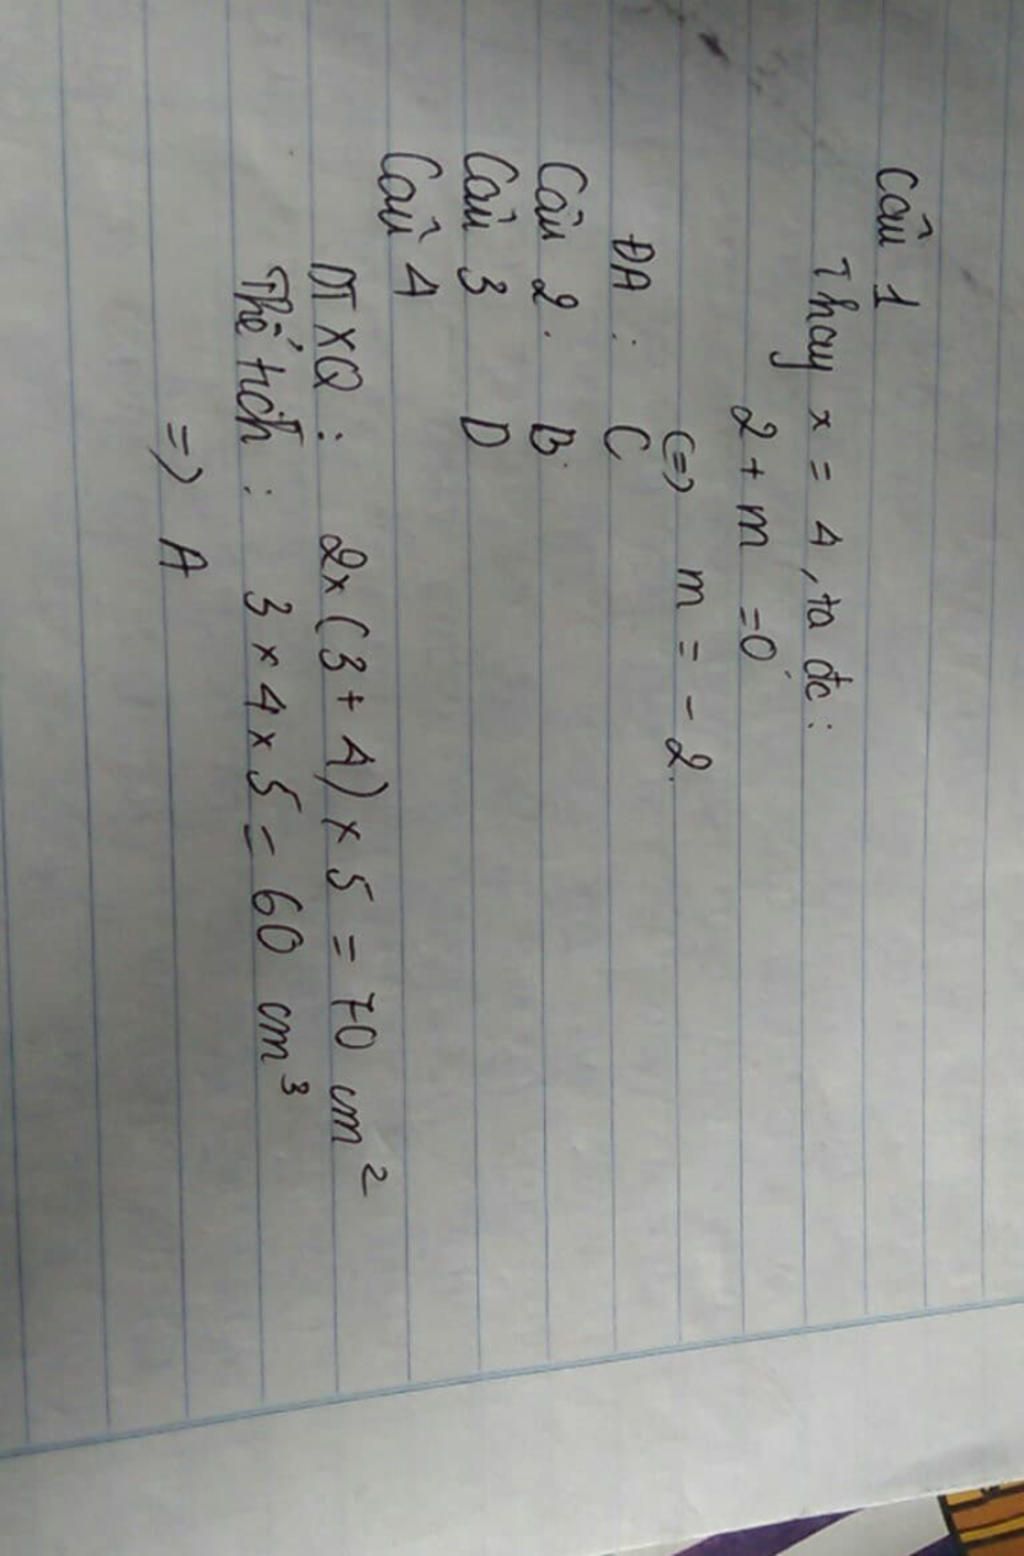 Câu 1
Thay x = 4, ta đc:
2 + m = 0
<=> m = - 2.
ĐA : C
Câu 2. B.
Câu 3 D
Câu 4
DTXQ : 2 x (3 + 4) x 5 = 70 cm²
Thể tích : 3 x 4 x 5 = 60 cm³
=> A